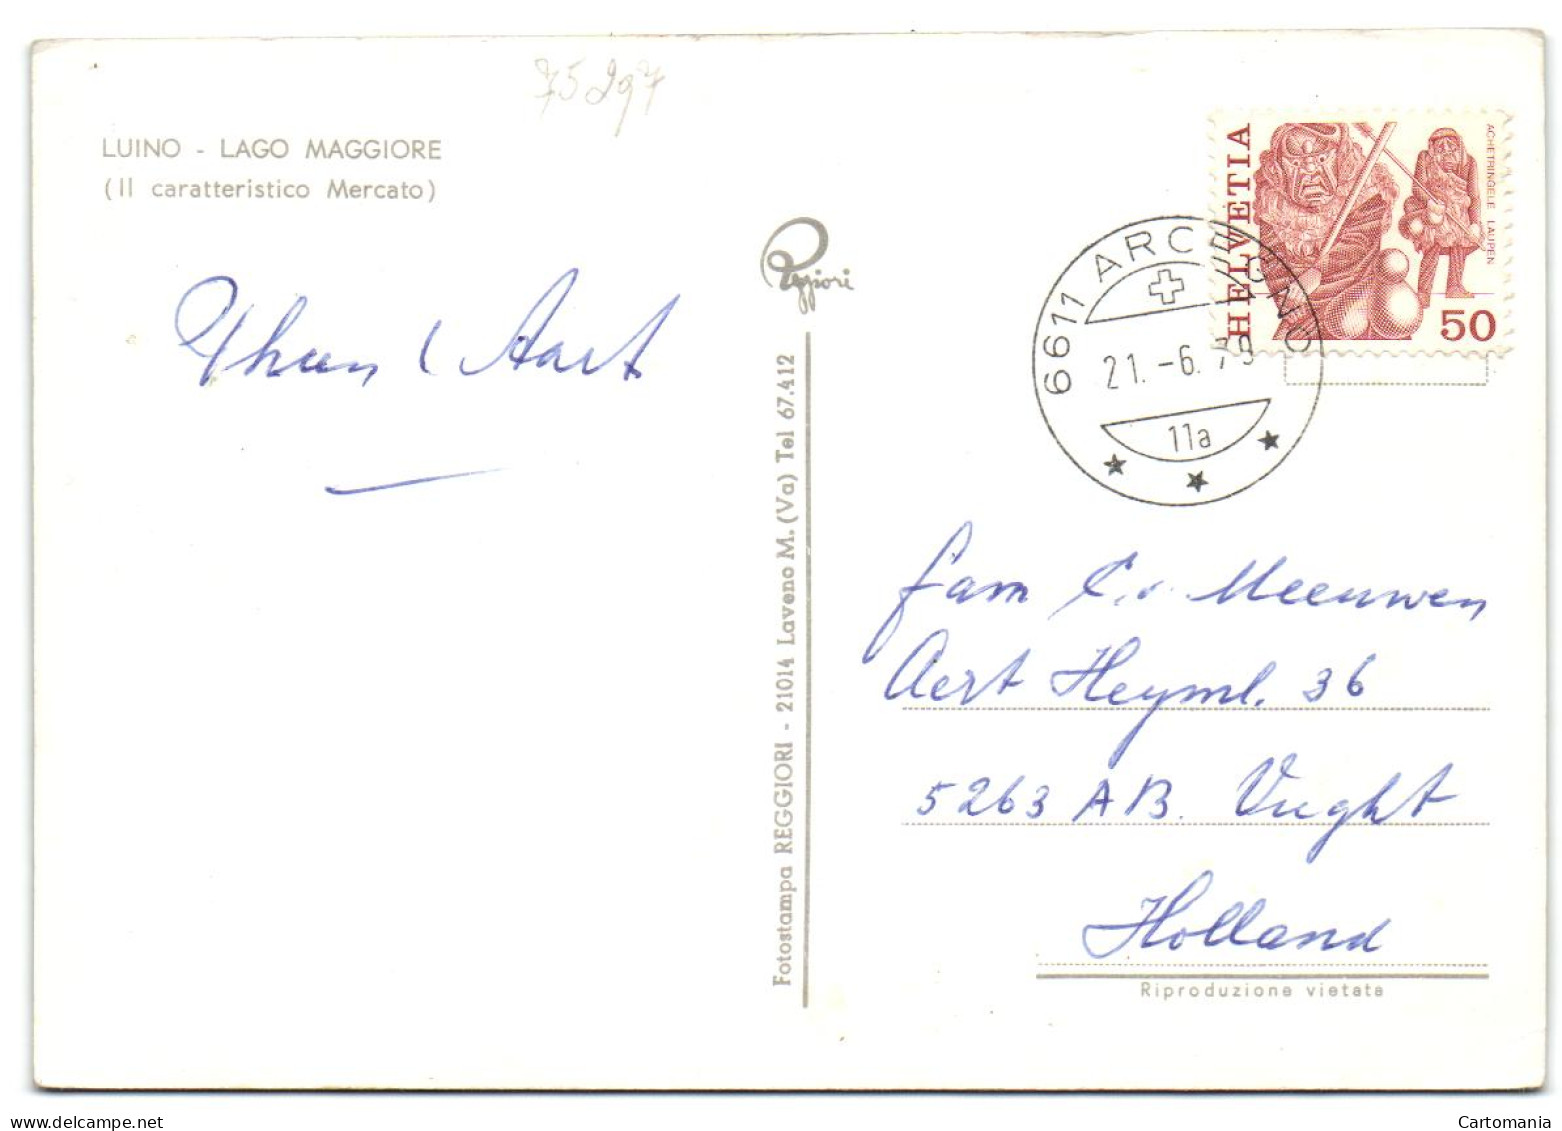 75297
LUINO - LAGO MAGGIORE
(Il caratteristico Mercato)
Reggiori
HELVETIA
ACHETRINGELE LAUPEN
50
6611 ARCEGNO
21.-6.79
11a
Fotostampa REGGIORI - 21014 Laveno M. (Va) Tel 67.412
Aart
fam C. v. Meeuwen
Aert Heyml. 36
5263 AB. Vught
Holland
Riproduzione vietata
Cartomania